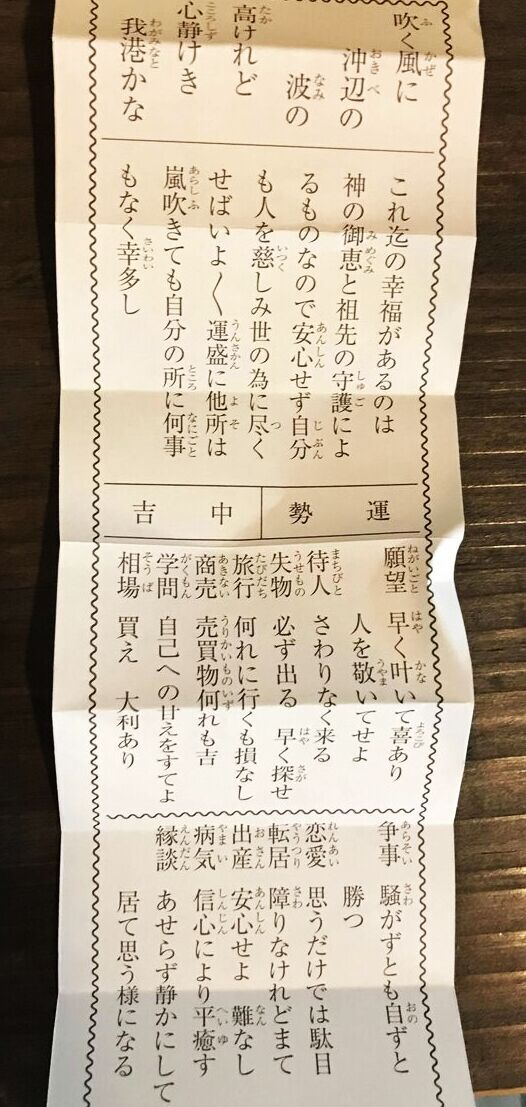 吹く風に
沖辺の
波の
高けれど
心静けき
我港かな
これ迄の幸福があるのは
神の御恵と祖先の守護によ
るものなので安心せず自分
も人を慈しみ世の為に尽く
せばいよ〱運盛に他所は
嵐吹きても自分の所に何事
もなく幸多し
運勢 中吉
願望 早く叶いて喜あり
人を敬いてせよ
待人 さわりなく来る
失物 必ず出る 早く探せ
旅行 何れに行くも損なし
商売 売買物何れも吉
学問 自己への甘えをすてよ
相場 買え 大利あり
争事 騒がずとも自ずと
勝つ
恋愛 思うだけでは駄目
転居 障りなけれどまて
出産 安心せよ 難なし
病気 信心により平癒す
縁談 あせらず静かにして
居て思う様になる